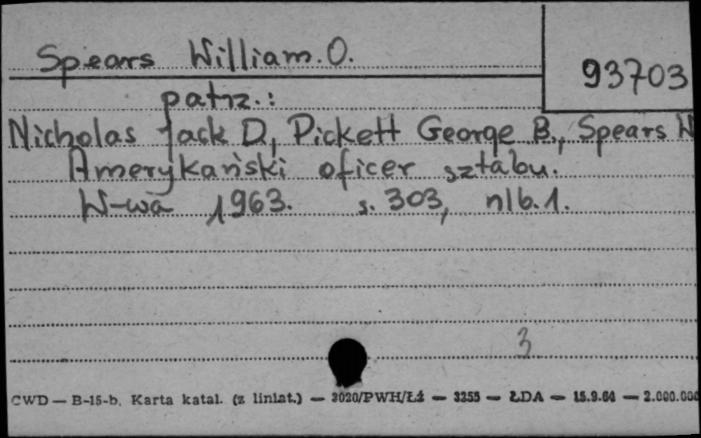 Spears William.O.
93703
patrz.:
Nicholas Jack D, Pickett George B., Spears W
Amerykański oficer sztabu.
W-wa 1963. s. 303, nlb.1.
3
CWD — B-15-b. Karta katal. (z liniat.) — 3020/PWH/Łź — 3255 — ŁDA — 15.9.64 — 2.000.000